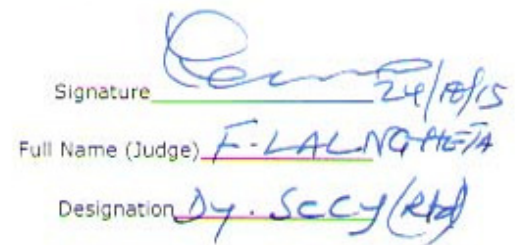 Signature 24/10/15
Full Name (Judge) F. LALNGHETA
Designation Dy. Secy (Rtd)